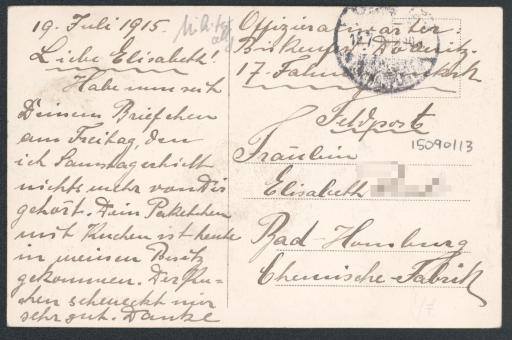 19. Juli 1915.
Liebe Elisabeth!
Habe nun seit
Deinem Briefchen
am Freitag, den
ich Samstag erhielt
nichts mehr von Dir
gehört. Dein Paketchen
mit Kuchen ist heute
in meinen Besitz
gekommen. Der Ku-
chen schmeckt mir
sehr gut. Danke
Offizieranwärter
Döberitz.
17.
Feldpost
Fräulein
Elisabeth
Bad-Homburg
Chemische-Fabrik
15090113